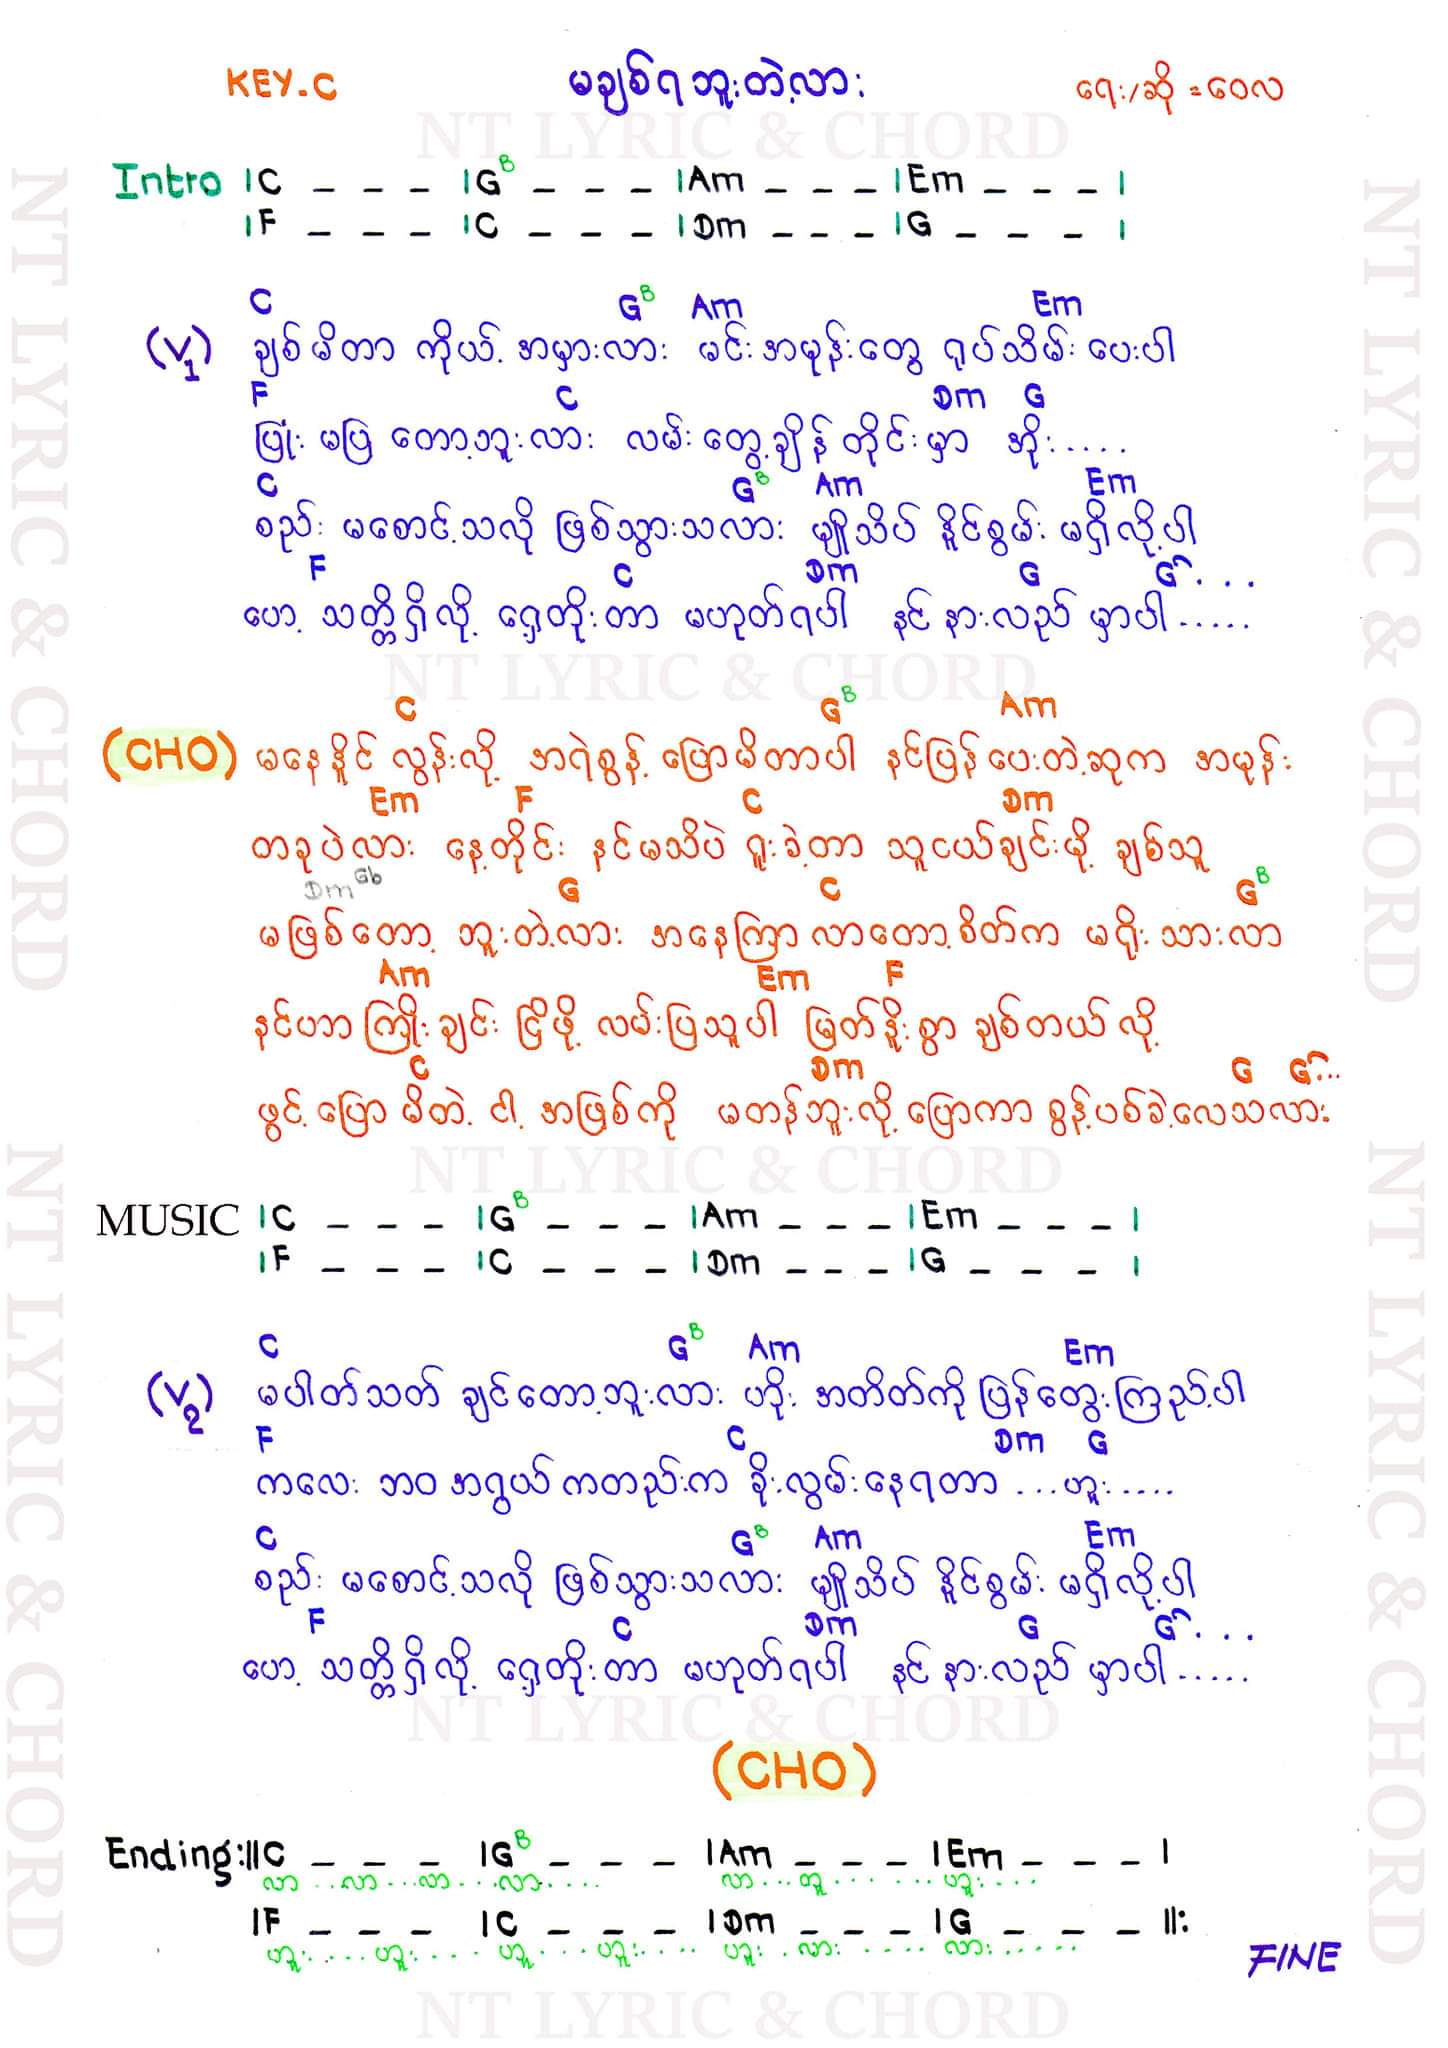 KEY.C မချစ်ရဘူးတဲ့လား ရေး/ဆို = ဝေလ
NT LYRIC & CHORD
Intro |C _ _ _ |G B _ _ _ |Am _ _ _ |Em _ _ _ |
|F _ _ _ |C _ _ _ |Dm _ _ _ |G _ _ _ |
C G B Am Em
(V1) ချစ်မိတာ ကိုယ့် အမှားလား မင်းအမုန်းတွေ ရုပ်သိမ်းပေးပါ
F C Dm G
ပြုံးမပြ တော့ဘူးလား လမ်းတွေ့ချိန်တိုင်းမှာ အိုး.....
C G B Am Em
စည်းမစောင့်သလို ဖြစ်သွားသလား မျိုသိပ်နိုင်စွမ်း မရှိလို့ပါ
F C Dm G G ...
ဟေ့ သတ္တိရှိလို့ ရှေ့တိုးတာ မဟုတ်ရပါ နင်နားလည်မှာပါ.....
NT LYRIC & CHORD
C G B Am
(CHO) မနေနိုင်လွန်းလို့ အရဲစွန့်ပြောမိတာပါ နင်ပြန်ပေးတဲ့ဆုက အမုန်း
Em F C Dm
တခုပဲလား နေ့တိုင်း နင်မသိပဲ ရူးခဲ့တာ သူငယ်ချင်းမို့ ချစ်သူ
Dm Gb G C G B
မဖြစ်တော့ ဘူးတဲ့လား အနေကြာလာတော့စိတ်က မရိုးသားလာ
Am Em F
နင်ဟာကြိုးချင်းငြိဖို့ လမ်းပြသူပါ မြတ်နိုးစွာ ချစ်တယ်လို့
C Dm G G ...
ဖွင့်ပြောမိတဲ့ ငါ့အဖြစ်ကို မတန်ဘူးလို့ပြောကာ စွန့်ပစ်ခဲ့လေသလား
NT LYRIC & CHORD
MUSIC |C _ _ _ |G B _ _ _ |Am _ _ _ |Em _ _ _ |
|F _ _ _ |C _ _ _ |Dm _ _ _ |G _ _ _ |
C G B Am Em
(V2) မပါတ်သတ် ချင်တော့ဘူးလား ဟိုး အတိတ်ကို ပြန်တွေးကြည့်ပါ
F C Dm G
ကလေးဘဝ အရွယ်ကတည်းက ခိုးလွမ်းနေရတာ ...ဟူး.....
C G B Am Em
စည်းမစောင့်သလို ဖြစ်သွားသလား မျိုသိပ်နိုင်စွမ်း မရှိလို့ပါ
F C Dm G G ...
ဟေ့ သတ္တိရှိလို့ ရှေ့တိုးတာ မဟုတ်ရပါ နင်နားလည်မှာပါ.....
NT LYRIC & CHORD
(CHO)
Ending:||C _ _ _ |G B _ _ _ |Am _ _ _ |Em _ _ _ |
လာ ...လာ ...လာ ...လာ.....
|F _ _ _ |C _ _ _ |Dm _ _ _ |G _ _ _ ||:
ဟူး.... ဟူး....
FINE
NT LYRIC & CHORD
NT LYRIC & CHORD
NT LYRIC & CHORD
NT LYRIC & CHORD
NT LYRIC & CHORD